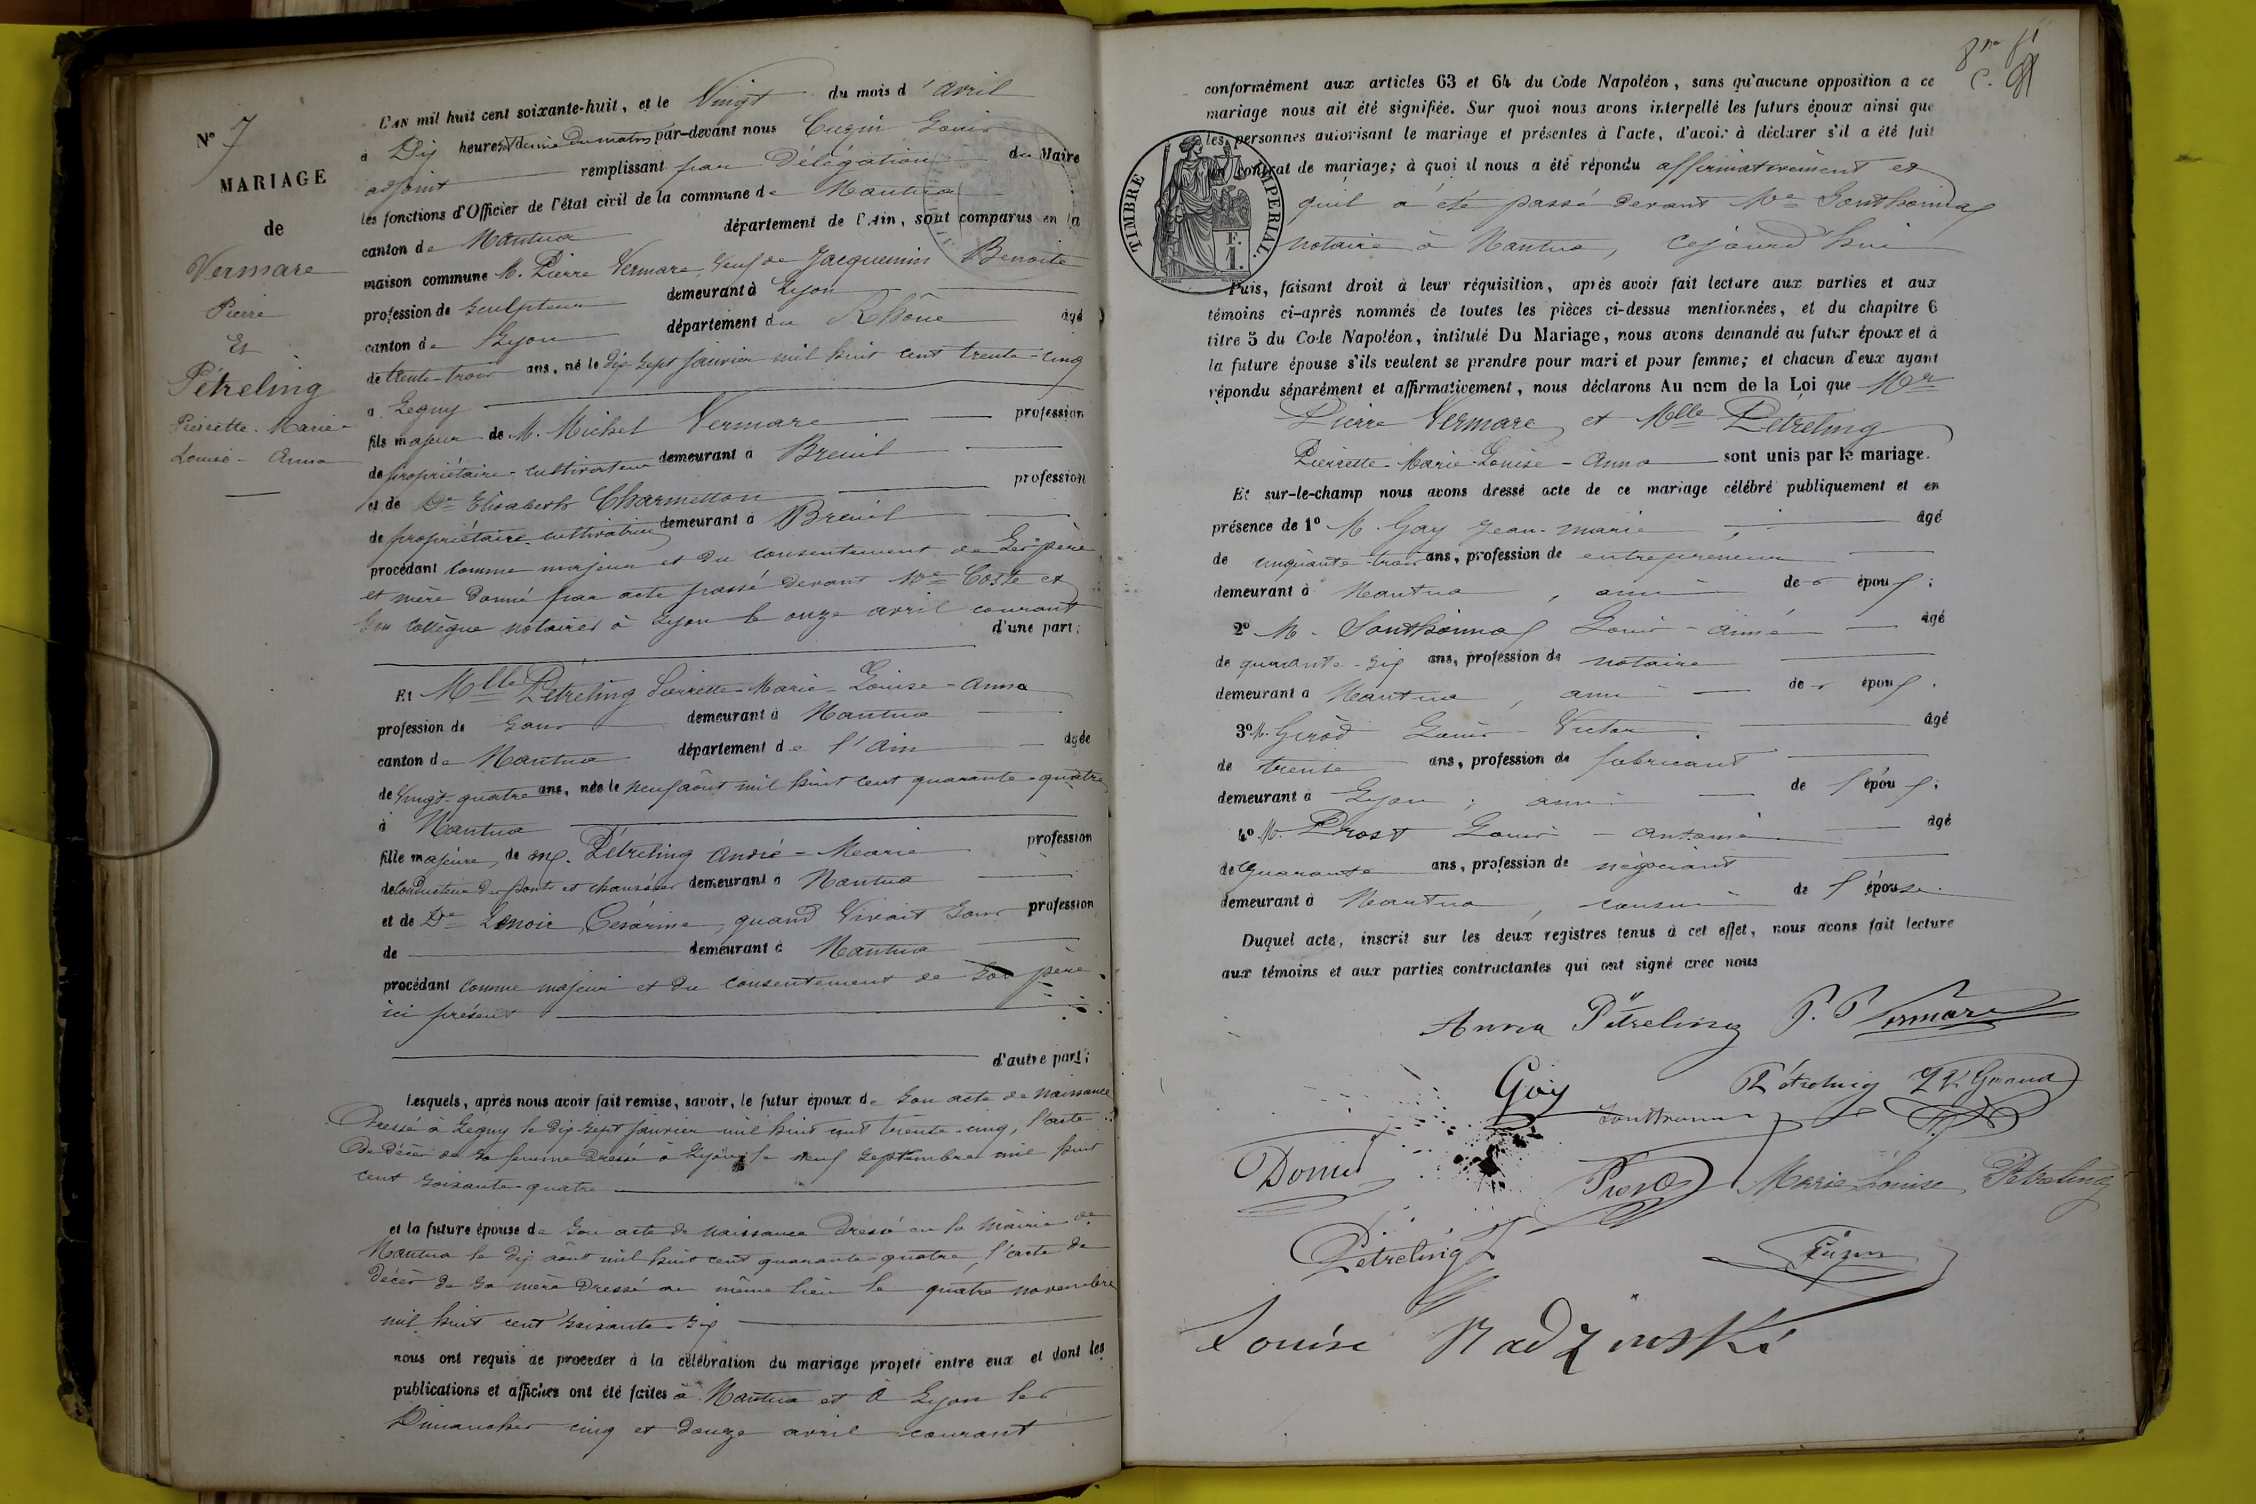 N° 7
MARIAGE
de
Vermare
Pierre
Et
Pétreling
Pierrette-Marie-
Louise-Anna
L'AN mil huit cent soixante-huit, et le Vingt du mois d'avril
à Dix heures et demie du matin par-devant nous Cugin Louis
adjoint remplissant par Délégation du Maire
les fonctions d'Officier de l'état civil de la commune de Nantua
canton de Nantua département de l'Ain, sont comparus en la
maison commune M. Pierre Vermare, Veuf de Jacquemin Benoite
profession de Sculpteur demeurant à Lyon
canton de Lyon département du Rhône âgé
de trente-trois ans, né le dix-sept janvier mil huit cent trente-cinq
à Legny
fils majeur de M. Michel Vermare profession
de propriétaire-cultivateur demeurant à Breuil
et de De Elisabeth Charmetton profession
de propriétaire cultivatrice demeurant à Breuil
procédant comme majeur et du consentement de Ses père
et mère donné par acte passé devant Me Coste et
Son collègue notaires à Lyon le onze avril courant
d'une part;
Et Mlle Pétreling Pierrette-Marie-Louise-Anna
profession de Sans demeurant à Nantua
canton de Nantua département de l'Ain âgée
de Vingt-quatre ans, née le neuf août mil huit cent quarante-quatre
à Nantua
fille majeure, de M. Pétreling André-Marie profession
de Conducteur des ponts et chaussées demeurant à Nantua
et de De Lenoir Césarine, quand Vivait Sans profession
de demeurant à Nantua
procédant comme majeur et du consentement de Son père
ici présent
d'autre part;
Lesquels, après nous avoir fait remise, savoir, le futur époux de Son acte de naissance
Dressé à Légny le dix-sept janvier mil huit cent trente-cinq, l'acte
de Décès de Sa femme dressé à Lyon le neuf Septembre mil huit
cent soixante-quatre
et la future épouse de Son acte de naissance Dressé en la Mairie de
Nantua le dix août mil huit cent quarante-quatre, l'acte de
décès de Sa mère Dressé au même lieu le quatre novembre
mil huit cent soixante-six
nous ont requis de procéder à la célébration du mariage projeté entre eux et dont les
publications et affiches ont été faites à Nantua et à Lyon les
Dimanches cinq et douze avril courant
conformément aux articles 63 et 64 du Code Napoléon, sans qu'aucune opposition a ce
mariage nous ait été signifiée. Sur quoi nous avons interpellé les futurs époux ainsi que
les personnes autorisant le mariage et présentes à l'acte, d'avoir à déclarer s'il a été fait
un contrat de mariage; à quoi il nous a été répondu affirmativement et
qu'il a été passé devant Me Sonthonnax
notaire à Nantua, cejourd'hui
TIMBRE IMPERIAL.
F.
1.
Puis, faisant droit à leur réquisition, après avoir fait lecture aux parties et aux
témoins ci-après nommés de toutes les pièces ci-dessus mentionnées, et du chapitre 6
titre 5 du Code Napoléon, intitulé Du Mariage, nous avons demandé au futur époux et à
la future épouse s'ils veulent se prendre pour mari et pour femme; et chacun d'eux ayant
répondu séparément et affirmativement, nous déclarons Au nom de la Loi que Mr
Pierre Vermare et Mlle Pétreling
Pierrette-Marie-Louise-Anna sont unis par le mariage.
Et sur-le-champ nous avons dressé acte de ce mariage célébré publiquement et en
présence de 1° M. Gay Jean-Marie âgé
de cinquante-trois ans, profession de entrepreneur
demeurant à Nantua, ami des époux;
2° M. Sonthonnax Louis-Aimé âgé
de quarante-six ans, profession de notaire
demeurant à Nantua, ami des époux.
3° M. Girod Louis-Victor âgé
de trente ans, profession de fabricant
demeurant à Lyon, ami de l'époux;
4° M. Prost Louis-Antoine âgé
de quarante ans, profession de négociant
demeurant à Nantua, cousin de l'épouse.
Duquel acte, inscrit sur les deux registres tenus à cet effet, nous avons fait lecture
aux témoins et aux parties contractantes qui ont signé avec nous
Anna Pétreling P. Vermare
Gay Pétreling
Sonthonnax
Prost Marie Louise Pétreling
Pétreling
Louise Radzinski